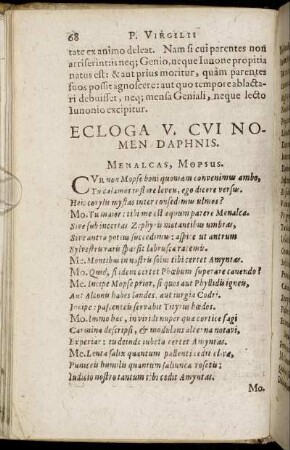 68 P. VIRGILII
tate ex animo deleat. Nam si cui parentes non
arriserint: is neq; Genio, neque Iunone propitia
natus est: & aut prius moritur, quàm parentes
suos possit agnoscere: aut quo tempore ablacta-
ri debuisset, neq; mensa Geniali, neque lecto
Iunonio excipitur.
ECLOGA V. CVI NO-
MEN DAPHNIS.
MENALCAS, MOPSUS.
CVR non Mopse boni quoniam convenimus ambo,
Tu calamos inflare leves, ego dicere versus.
Heic corylis mystas inter consedimus ulmos?
Mo. Tu maior: tibi me est æquum parere Menalca.
Sive sub incertas Zephyris motantibus umbras,
Sive antra potius succedimus: aspice ut antrum
Sylvestris raris sparsit labrusca racemis.
Me. Montibus in nostris solus tibi certet Amyntas.
Mo. Quid, si idem certet Phœbum superare canendo?
Me. Incipe Mopse prior, si quos aut Phyllidis igneis,
Aut Alconis habes laudes, aut iurgia Codri.
Incipe: pascenteis servabit Tityrus hœdos.
Mo. Immo hæc, in viridi nuper quæ cortice fagi
Carmina descripsi, & modulans alterna notavi,
Experiar: tu deinde iubeto certet Amyntas.
Me. Lenta salix quantum pallenti cedit olivæ,
Puniceis humilis quantum saliunca rosetis:
Iudicio nostro tantum tibi cedit Amyntas.
Mo.